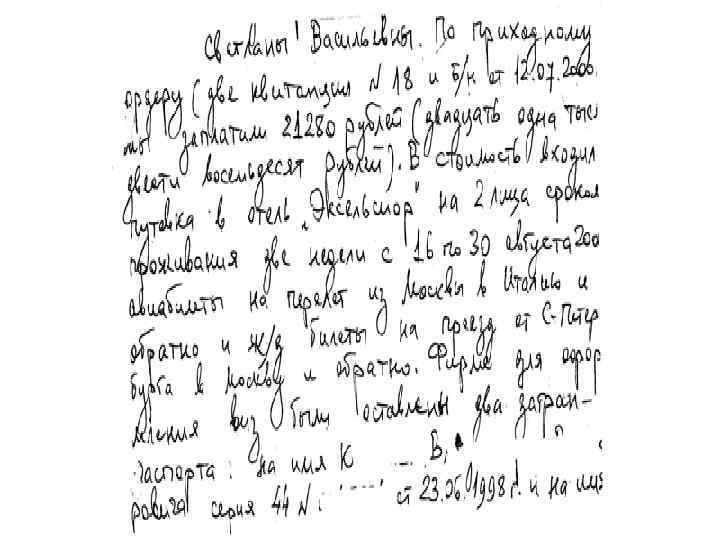 Светланы Васильевны. По приходному
ордеру (две квитанции N 18 и б/н от 12.07.2000.
мы заплатили 21280 рублей (двадцать одна тыся
двести восемьдесят рублей). В стоимость входил
путевка в отель „Эксельсиор" на 2 лица сроком
проживания две недели с 16 по 30 августа 200
авиабилеты на перелет из Москвы в Италию и
обратно и ж/д билеты на проезд от С-Петер
бурга в Москву и обратно. Фирме для офор
мления виз были оставлены два загран-
паспорта: на имя К В.
ровича серия 44 N: от 23.06.1998 г. и на имя